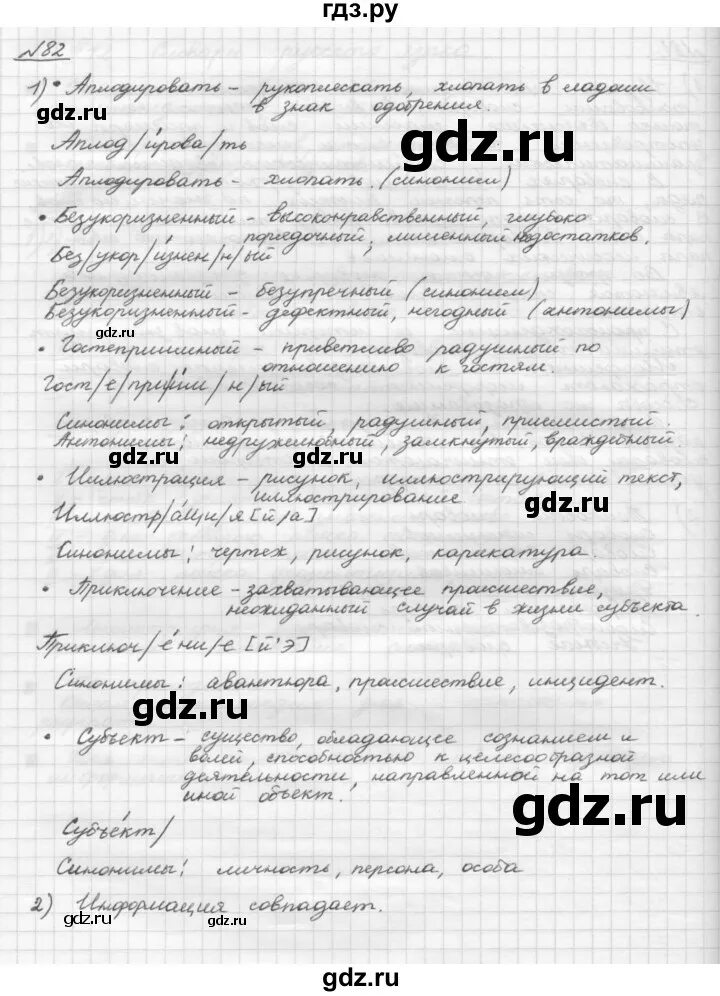 гдз.ру
№82
1) • Аплодировать – рукоплескать, хлопать в ладоши
в знак одобрения.
gdz.ru
gdz.ru
Аплод/и́рова/ть
Аплодировать – хлопать. (синонием)
• Безукоризненный – высоконравственный, глубоко
порядочный, лишенный недостатков.
gdz.ru
Без/укор/и́знен/н/ый
Безукоризненный – безупречный (синонием)
Безукоризненный – дефектный, негодный (антонимы)
gdz.ru
• Гостеприимный – приветливо радушный по
отношению к гостям.
gdz.ru
Гост/е/прии́м/н/ый
Синонимы: открытый, радушный, приемистый.
Антонимы: недружелюбный, замкнутый, враждебный.
gdz.ru
gdz.ru
• Иллюстрация – рисунок, иллюстрирующий текст,
иллюстрирование
gdz.ru
Иллюстр/а́ци/я [й/а]
Синонимы: чертеж, рисунок, карикатура.
• Приключение – захватывающее происшествие,
неожиданный случай в жизни субъекта.
gdz.ru
Приключ/е́ни/е [й'э]
Синонимы: авантюра, происшествие, инцидент.
gdz.ru
• Субъект – существо, обладающее сознанием и
волей, способностью к целесообразной
деятельности, направленной на тот или
иной объект.
gdz.ru
gdz.ru
Субъе́кт/
Синонимы: личность, персона, особа
2) Информация совпадает.
gdz.ru
gdz.ru
gdz.ru